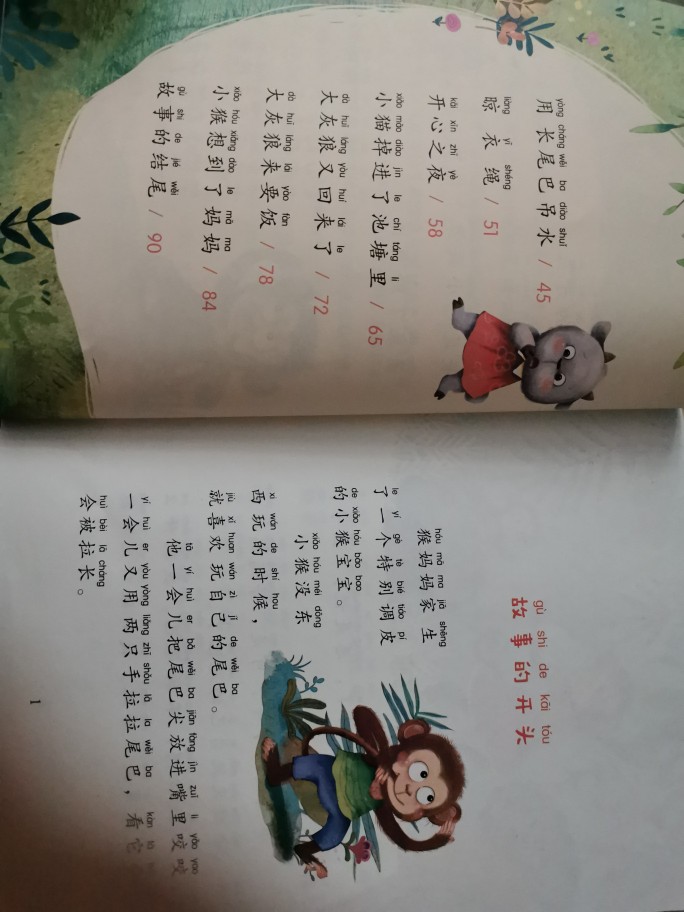 yòng cháng wěi ba diào shuǐ
用长尾巴吊水 / 45
liàng yī shéng
晾衣绳 / 51
kāi xīn zhī yè
开心之夜 / 58
xiǎo māo diào jìn le chí táng lǐ
小猫掉进了池塘里 / 65
dà huī láng yòu huí lái le
大灰狼又回来了 / 72
dà huī láng lái yào fàn
大灰狼来要饭 / 78
xiǎo hóu xiǎng dào le mā ma
小猴想到了妈妈 / 84
gù shi de jié wěi
故事的结尾 / 90
gù shi de kāi tóu
故事的开头
hóu mā ma jiā shēng
猴妈妈家生
le yí gè tè bié tiáo pí
了一个特别调皮
de xiǎo hóu bǎo bao
的小猴宝宝。
xiǎo hóu méi dōng
小猴没东
xi wán de shí hou
西玩的时候，
jiù xǐ huan wán zì jǐ de wěi ba
就喜欢玩自己的尾巴。
tā yí huì er bǎ wěi ba jiān fàng jìn zuǐ li yǎo yao
他一会儿把尾巴尖放进嘴里咬咬
yí huì er yòu yòng liǎng zhī shǒu lā la wěi ba kàn tā
一会儿又用两只手拉拉尾巴，看它
huì bèi lā cháng
会被拉长。
1